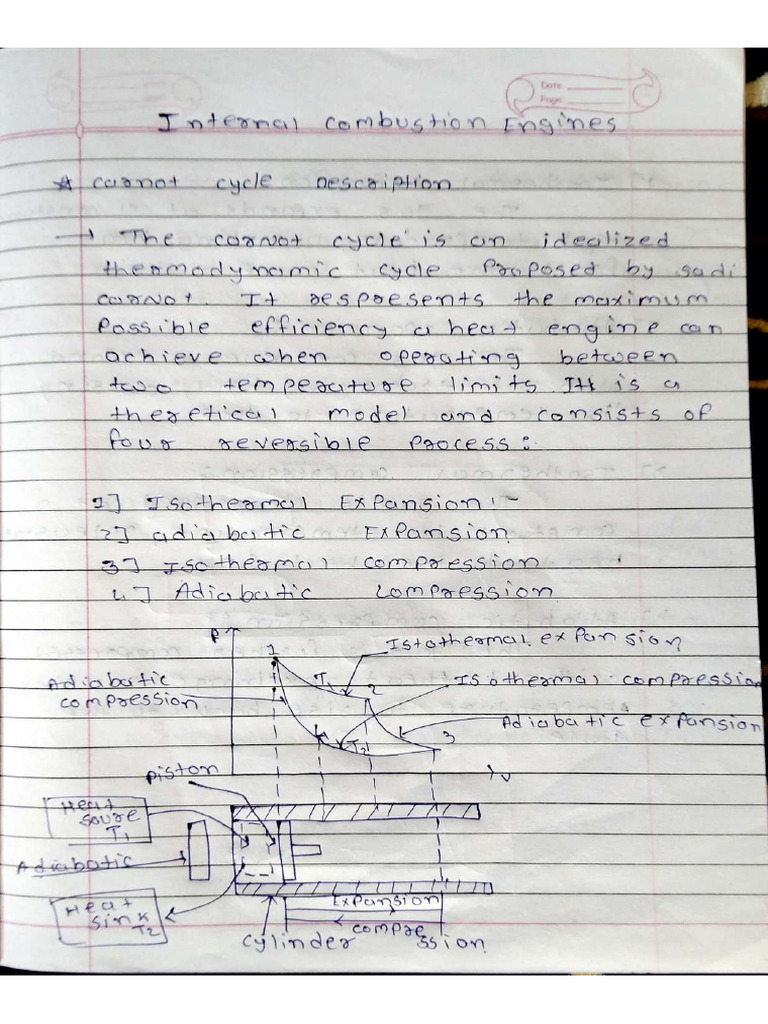 Date
Page
Internal Combustion Engines
* carnot cycle Description
→ The carnot cycle is an idealized
thermodynamic cycle proposed by sadi
carnot. It respresents the maximum
Possible efficiency a heat engine can
achieve when operating between
two temperature limits. It is a
theretical model and consists of
four reversible process:
1] Isothermal Expansion:-
2] adiabatic Expansion
3] Isothermal compression
4] Adiabatic compression
P↑
1
Istothermal expansion
Adiabatic
compression
T1
2
Isothermal compression
Adiabatic expansion
4
T2
3
→v
piston
Heat
soure
T1
Adiabatic
Heat
sink
T2
Expansion
cylinder
compression